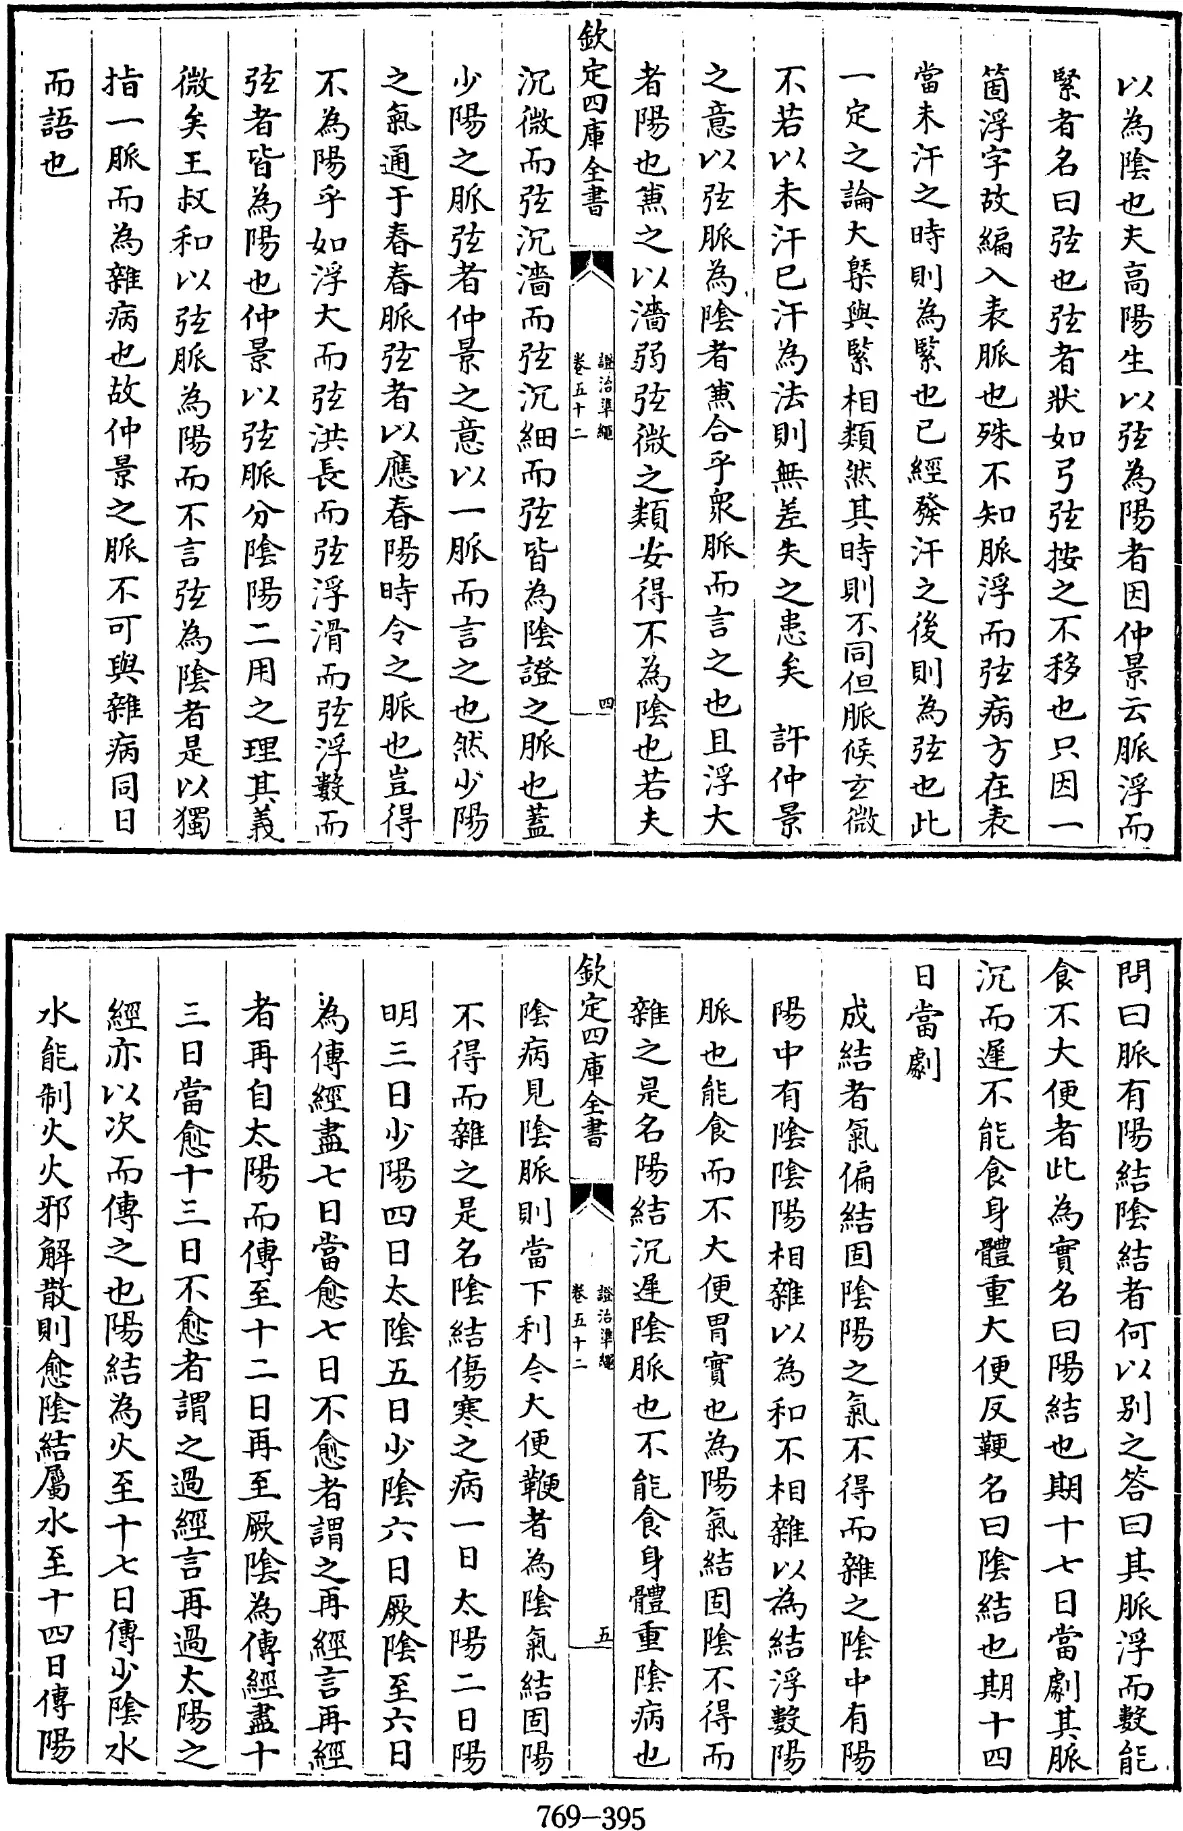 以為陰也夫高陽生以弦為陽者因仲景云脈浮而
緊者名曰弦也弦者狀如弓弦按之不移也只因一
箇浮字故編入表脈也殊不知脈浮而弦病方在表
當未汗之時則為緊也已經發汗之後則為弦也此
一定之論大槩與緊相類然其時則不同但脈候玄微
不若以未汗已汗為法則無差失之患矣　許仲景
之意以弦脈為陰者兼合乎衆脈而言之也且浮大
者陽也兼之以濇弱弦微之類安得不為陰也若夫
欽定四庫全書
證治準繩
卷五十二
四
沉微而弦沉濇而弦沉細而弦皆為陰證之脈也蓋
少陽之脈弦者仲景之意以一脈而言之也然少陽
之氣通于春春脈弦者以應春陽時令之脈也豈得
不為陽乎如浮大而弦洪長而弦浮滑而弦浮數而
弦者皆為陽也仲景以弦脈分陰陽二用之理其義
微矣王叔和以弦脈為陽而不言弦為陰者是以獨
指一脈而為雜病也故仲景之脈不可與雜病同日
而語也
問曰脈有陽結陰結者何以別之答曰其脈浮而數能
食不大便者此為實名曰陽結也期十七日當劇其脈
沉而遲不能食身體重大便反鞕名曰陰結也期十四
日當劇
成結者氣偏結固陰陽之氣不得而雜之陰中有陽
陽中有陰陰陽相雜以為和不相雜以為結浮數陽
脈也能食而不大便胃實也為陽氣結固陰不得而
雜之是名陽結沉遲陰脈也不能食身體重陰病也
欽定四庫全書
證治準繩
卷五十二
五
陰病見陰脈則當下利今大便鞕者為陰氣結固陽
不得而雜之是名陰結傷寒之病一日太陽二日陽
明三日少陽四日太陰五日少陰六日厥陰至六日
為傳經盡七日當愈七日不愈者謂之再經言再經
者再自太陽而傳至十二日再至厥陰為傳經盡十
三日當愈十三日不愈者謂之過經言再過太陽之
經亦以次而傳之也陽結為火至十七日傳少陰水
水能制火火邪解散則愈陰結屬水至十四日傳陽
769-395